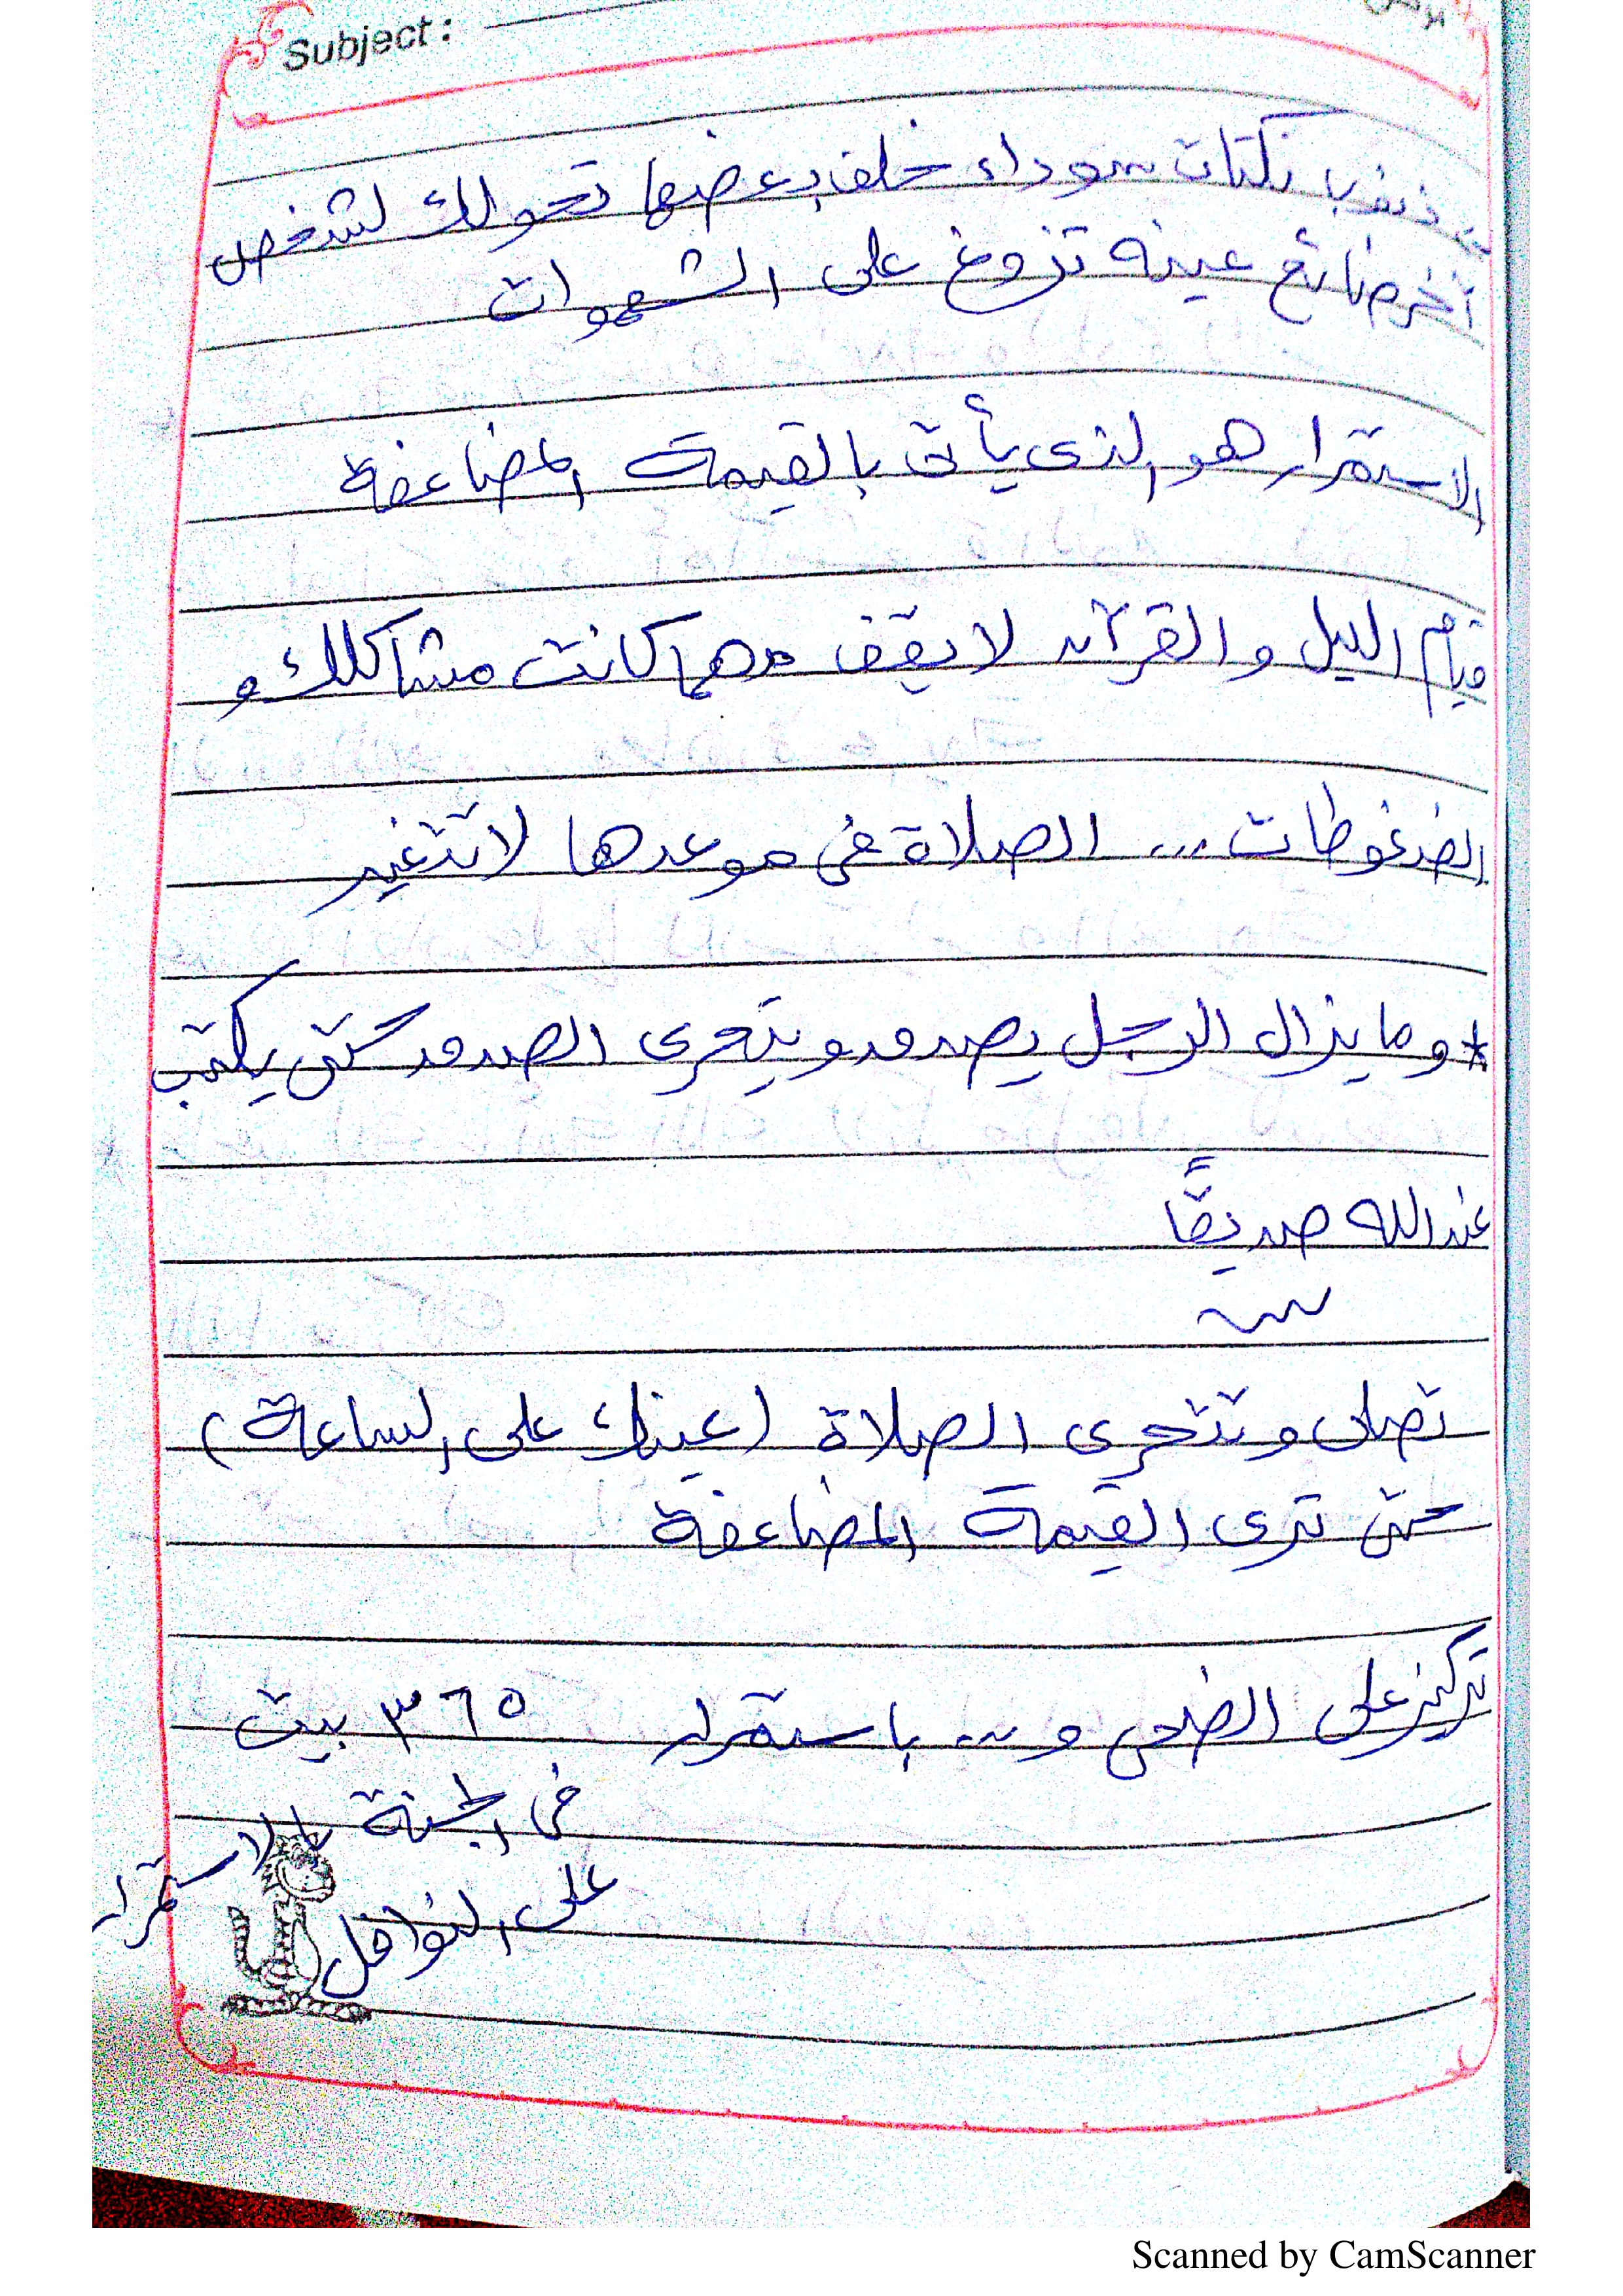 Subject :
ذنب نكتات سوداء خلف بعضها تحولك لشخص
آخر ضائع عينه تزوغ على الشهوات
الاستمرار هو الذى يأتى بالقيمة المضاعفة
قيام الليل والقرآن لا يقف مهما كانت مشاكلك و
الضغوطات ... الصلاة فى موعدها لا تتغير
* وما يزال الرجل يصدق ويتحرى الصدق حتى يكتب
عند الله صديقًا
تصلى وتتحرى الصلاة (عينك على الساعة)
حتى ترى القيمة المضاعفة
تركيز على الضحى و ... باستمرار ٣٦٥ بيت
فى الجنة بالاستمرار
على النوافل
Scanned by CamScanner